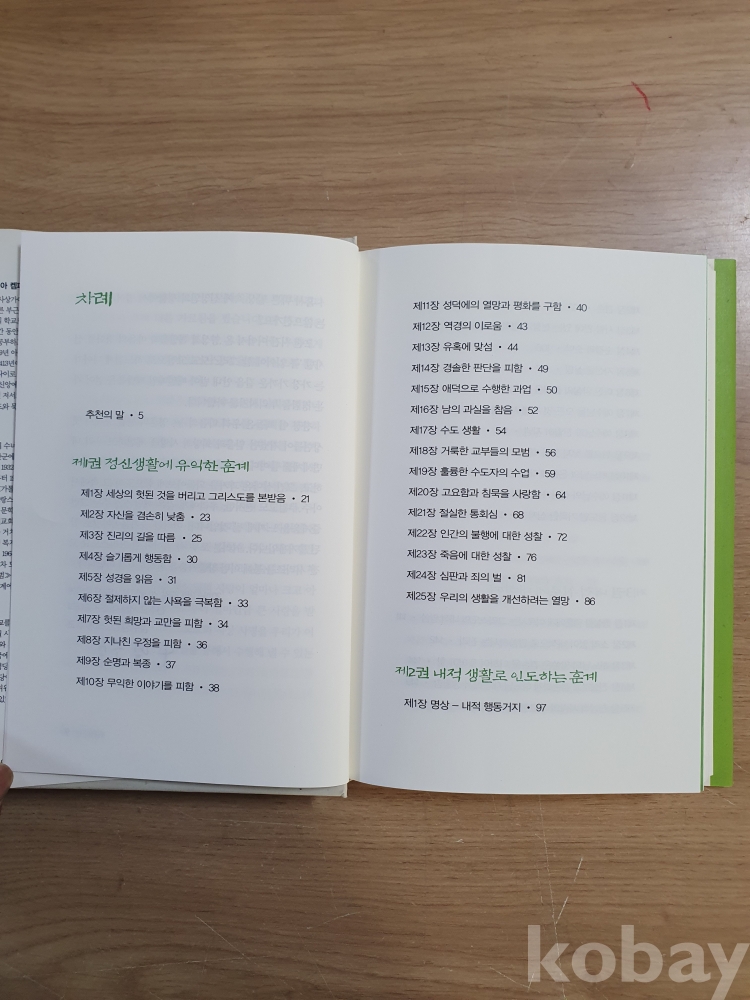 차례
추천의 말 • 5
제1권 정신생활에 유익한 훈계
제1장 세상의 헛된 것을 버리고 그리스도를 본받음 • 21
제2장 자신을 겸손히 낮춤 • 23
제3장 진리의 길을 따름 • 25
제4장 슬기롭게 행동함 • 30
제5장 성경을 읽음 • 31
제6장 절제하지 않는 사욕을 극복함 • 33
제7장 헛된 희망과 교만을 피함 • 34
제8장 지나친 우정을 피함 • 36
제9장 순명과 복종 • 37
제10장 무익한 이야기를 피함 • 38
제11장 성덕에의 열망과 평화를 구함 • 40
제12장 역경의 이로움 • 43
제13장 유혹에 맞섬 • 44
제14장 경솔한 판단을 피함 • 49
제15장 애덕으로 수행한 과업 • 50
제16장 남의 과실을 참음 • 52
제17장 수도 생활 • 54
제18장 거룩한 교부들의 모범 • 56
제19장 훌륭한 수도자의 수업 • 59
제20장 고요함과 침묵을 사랑함 • 64
제21장 절실한 통회심 • 68
제22장 인간의 불행에 대한 성찰 • 72
제23장 죽음에 대한 성찰 • 76
제24장 심판과 죄의 벌 • 81
제25장 우리의 생활을 개선하려는 열망 • 86
제2권 내적 생활로 인도하는 훈계
제1장 명상 – 내적 행동거지 • 97
kobay